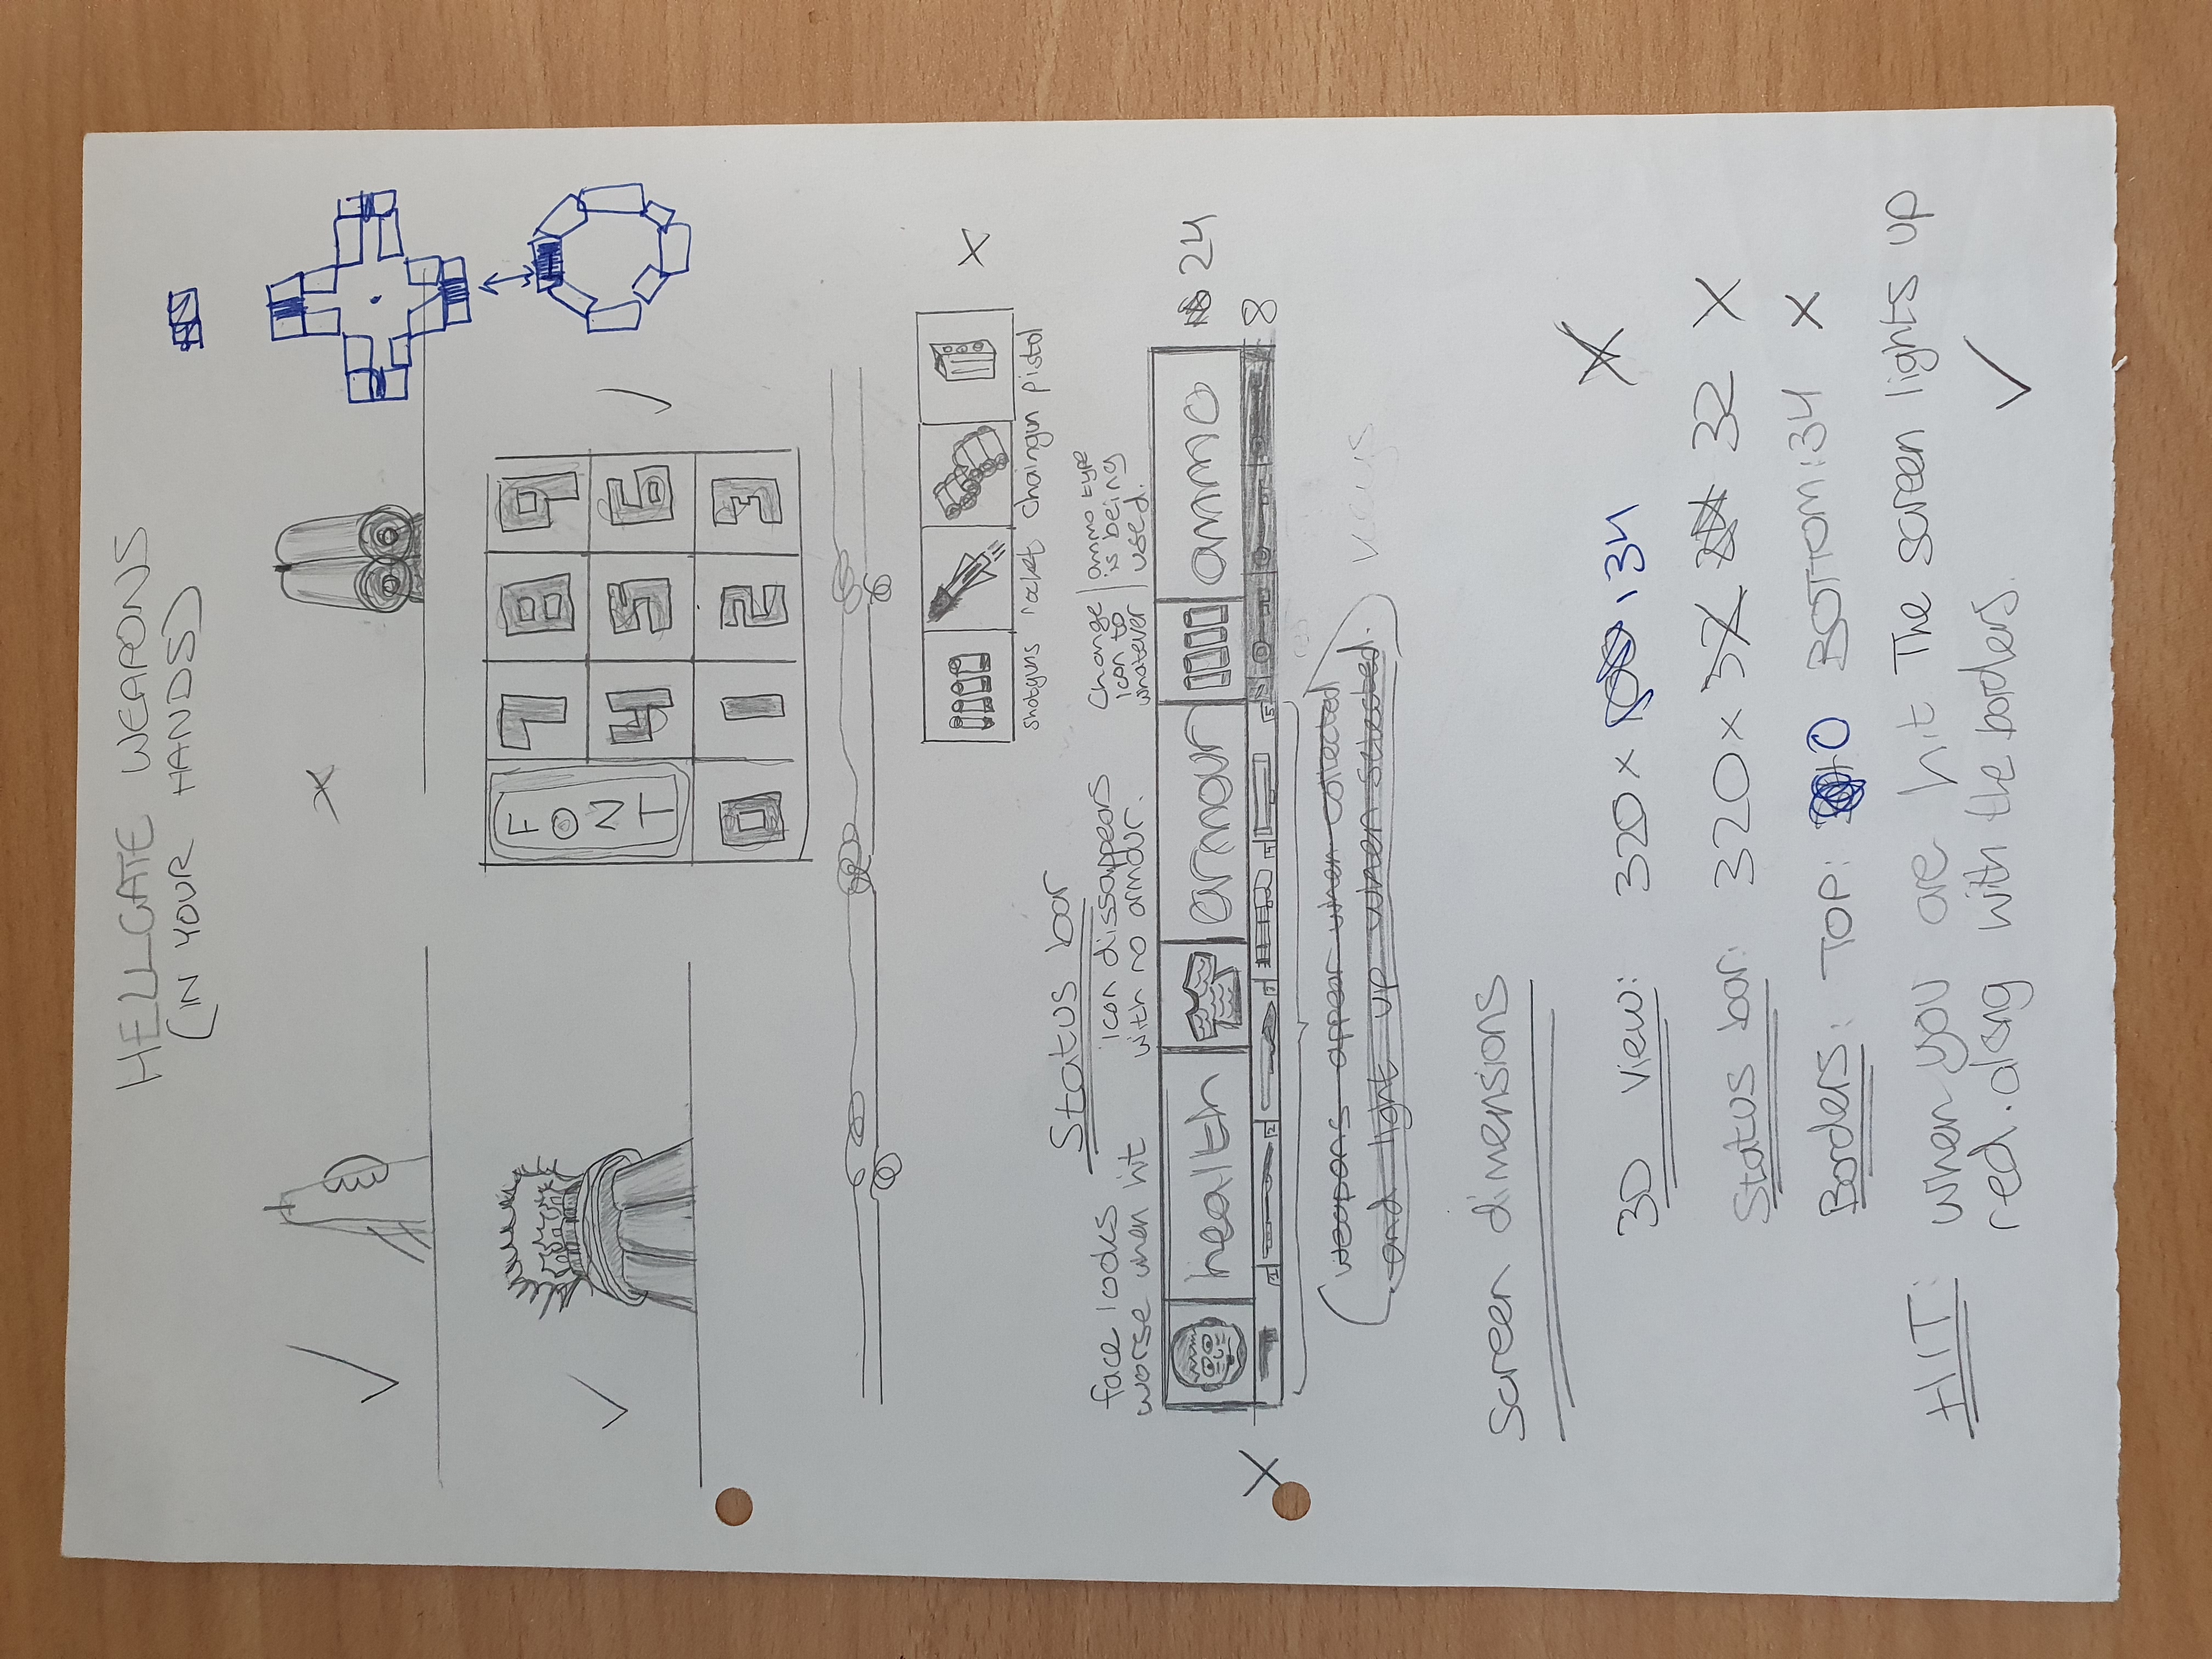 HELLGATE WEAPONS
(IN YOUR HANDS)
FONT
7 8 9
4 5 6
0 1 2 3
shotguns rocket chaingun pistol
Status bar
face looks
worse when hit
icon dissappears
with no armour.
Change
icon to
whatever
ammo type
is being
used.
health armour ammo
24
1 2 3 4 5
8
weapons appear when collected
and light up when selected.
keys
Screen dimensions
3D view: 320 x 134
Status bar: 320 x 32 32
Borders: TOP: 0 BOTTOM: 34
HIT: when you are hit The screen lights up
red. along with the borders.